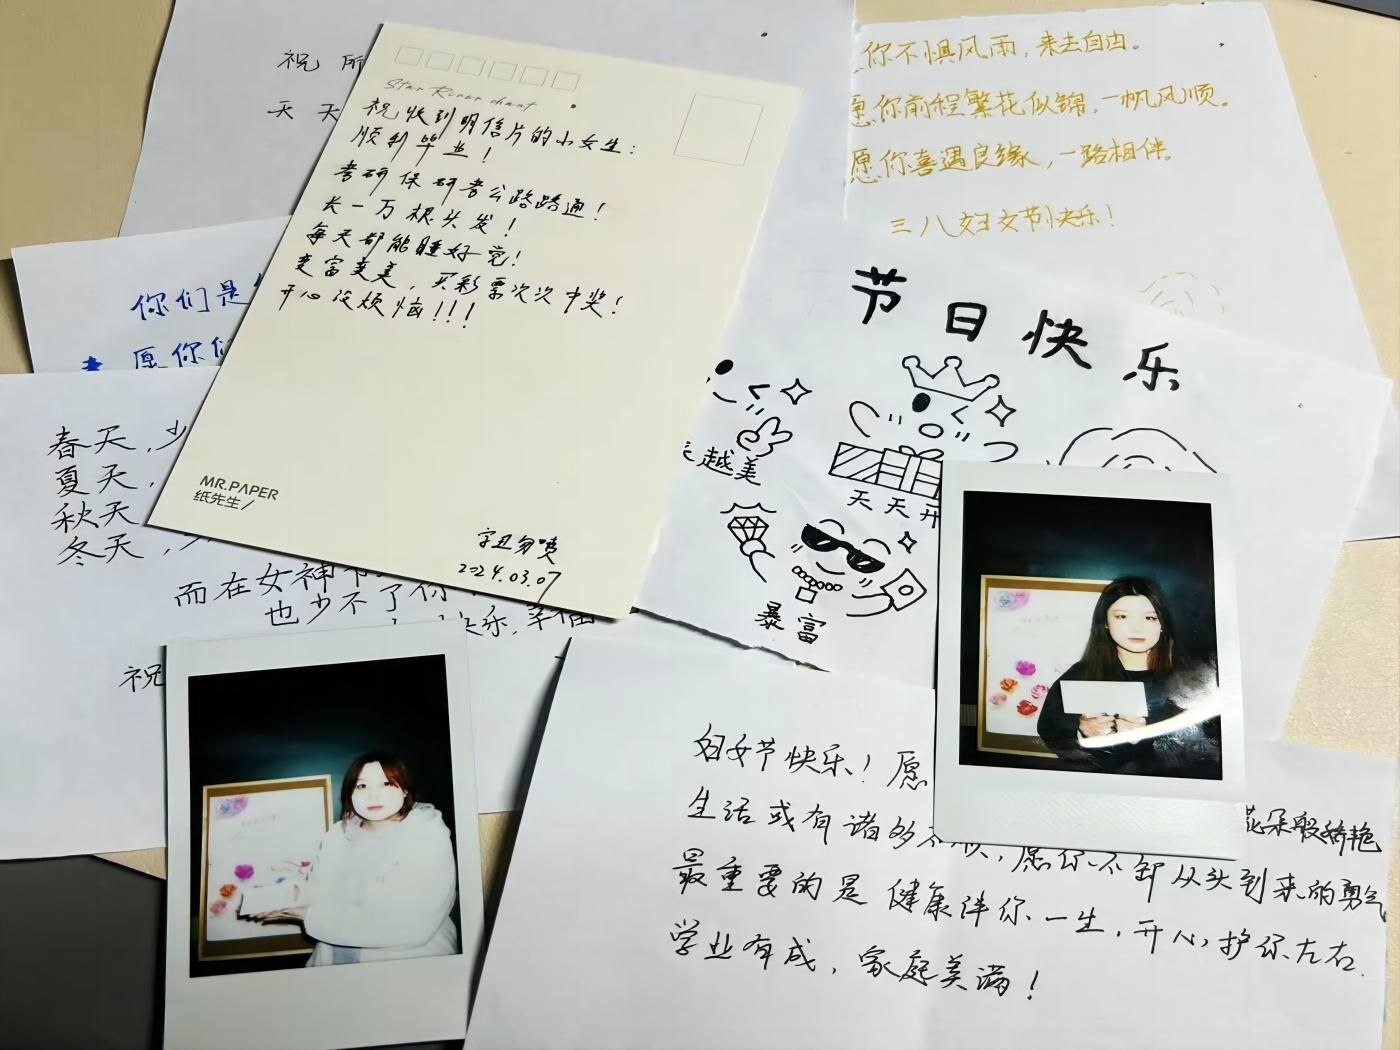 祝 所
天 天
Star River chant
祝收到明信片的小女生：
顺利毕业！
考研保研考公路路通！
长一万根头发！
每天都能睡好觉！
变富变美，买彩票次次中奖！
开心没烦恼！！！
MR.PAPER
纸先生
2024.03.07
你不惧风雨，来去自由。
愿你前程繁花似锦，一帆风顺。
愿你喜遇良缘，一路相伴。
三八妇女节快乐！
你们是
愿你们
春天，少
夏天，
秋天
冬天，
而在女神节
也少不了你
快乐，幸福
祝
节日快乐
越美
天天开
暴富
妇女节快乐！愿
花朵般娇艳
生活或有诸多不顺，愿你不卸从头到来的勇气
最重要的是健康伴你一生，开心护你左右.
学业有成，家庭美满！